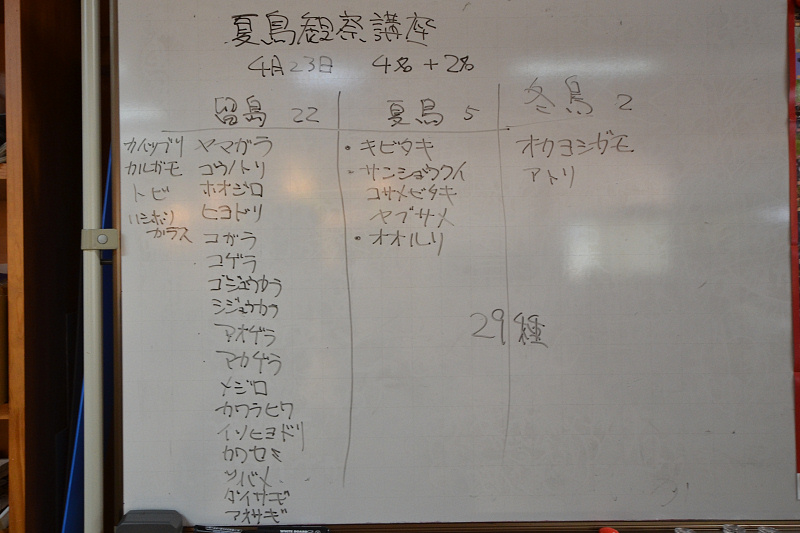 夏鳥観察講座
4月23日 4名+2名
留鳥 22
カイツブリ ヤマガラ
カルガモ コウノトリ
トビ ホオジロ
ハシボソ ヒヨドリ
ガラス コガラ
コゲラ
ゴジュウカラ
シジュウカラ
アオゲラ
アカゲラ
メジロ
カワラヒワ
イソヒヨドリ
カワセミ
ツバメ
ダイサギ
アオサギ
夏鳥 5
・キビタキ
・サンショウクイ
コサメビタキ
ヤブサメ
・オオルリ
冬鳥 2
オカヨシガモ
アトリ
29種